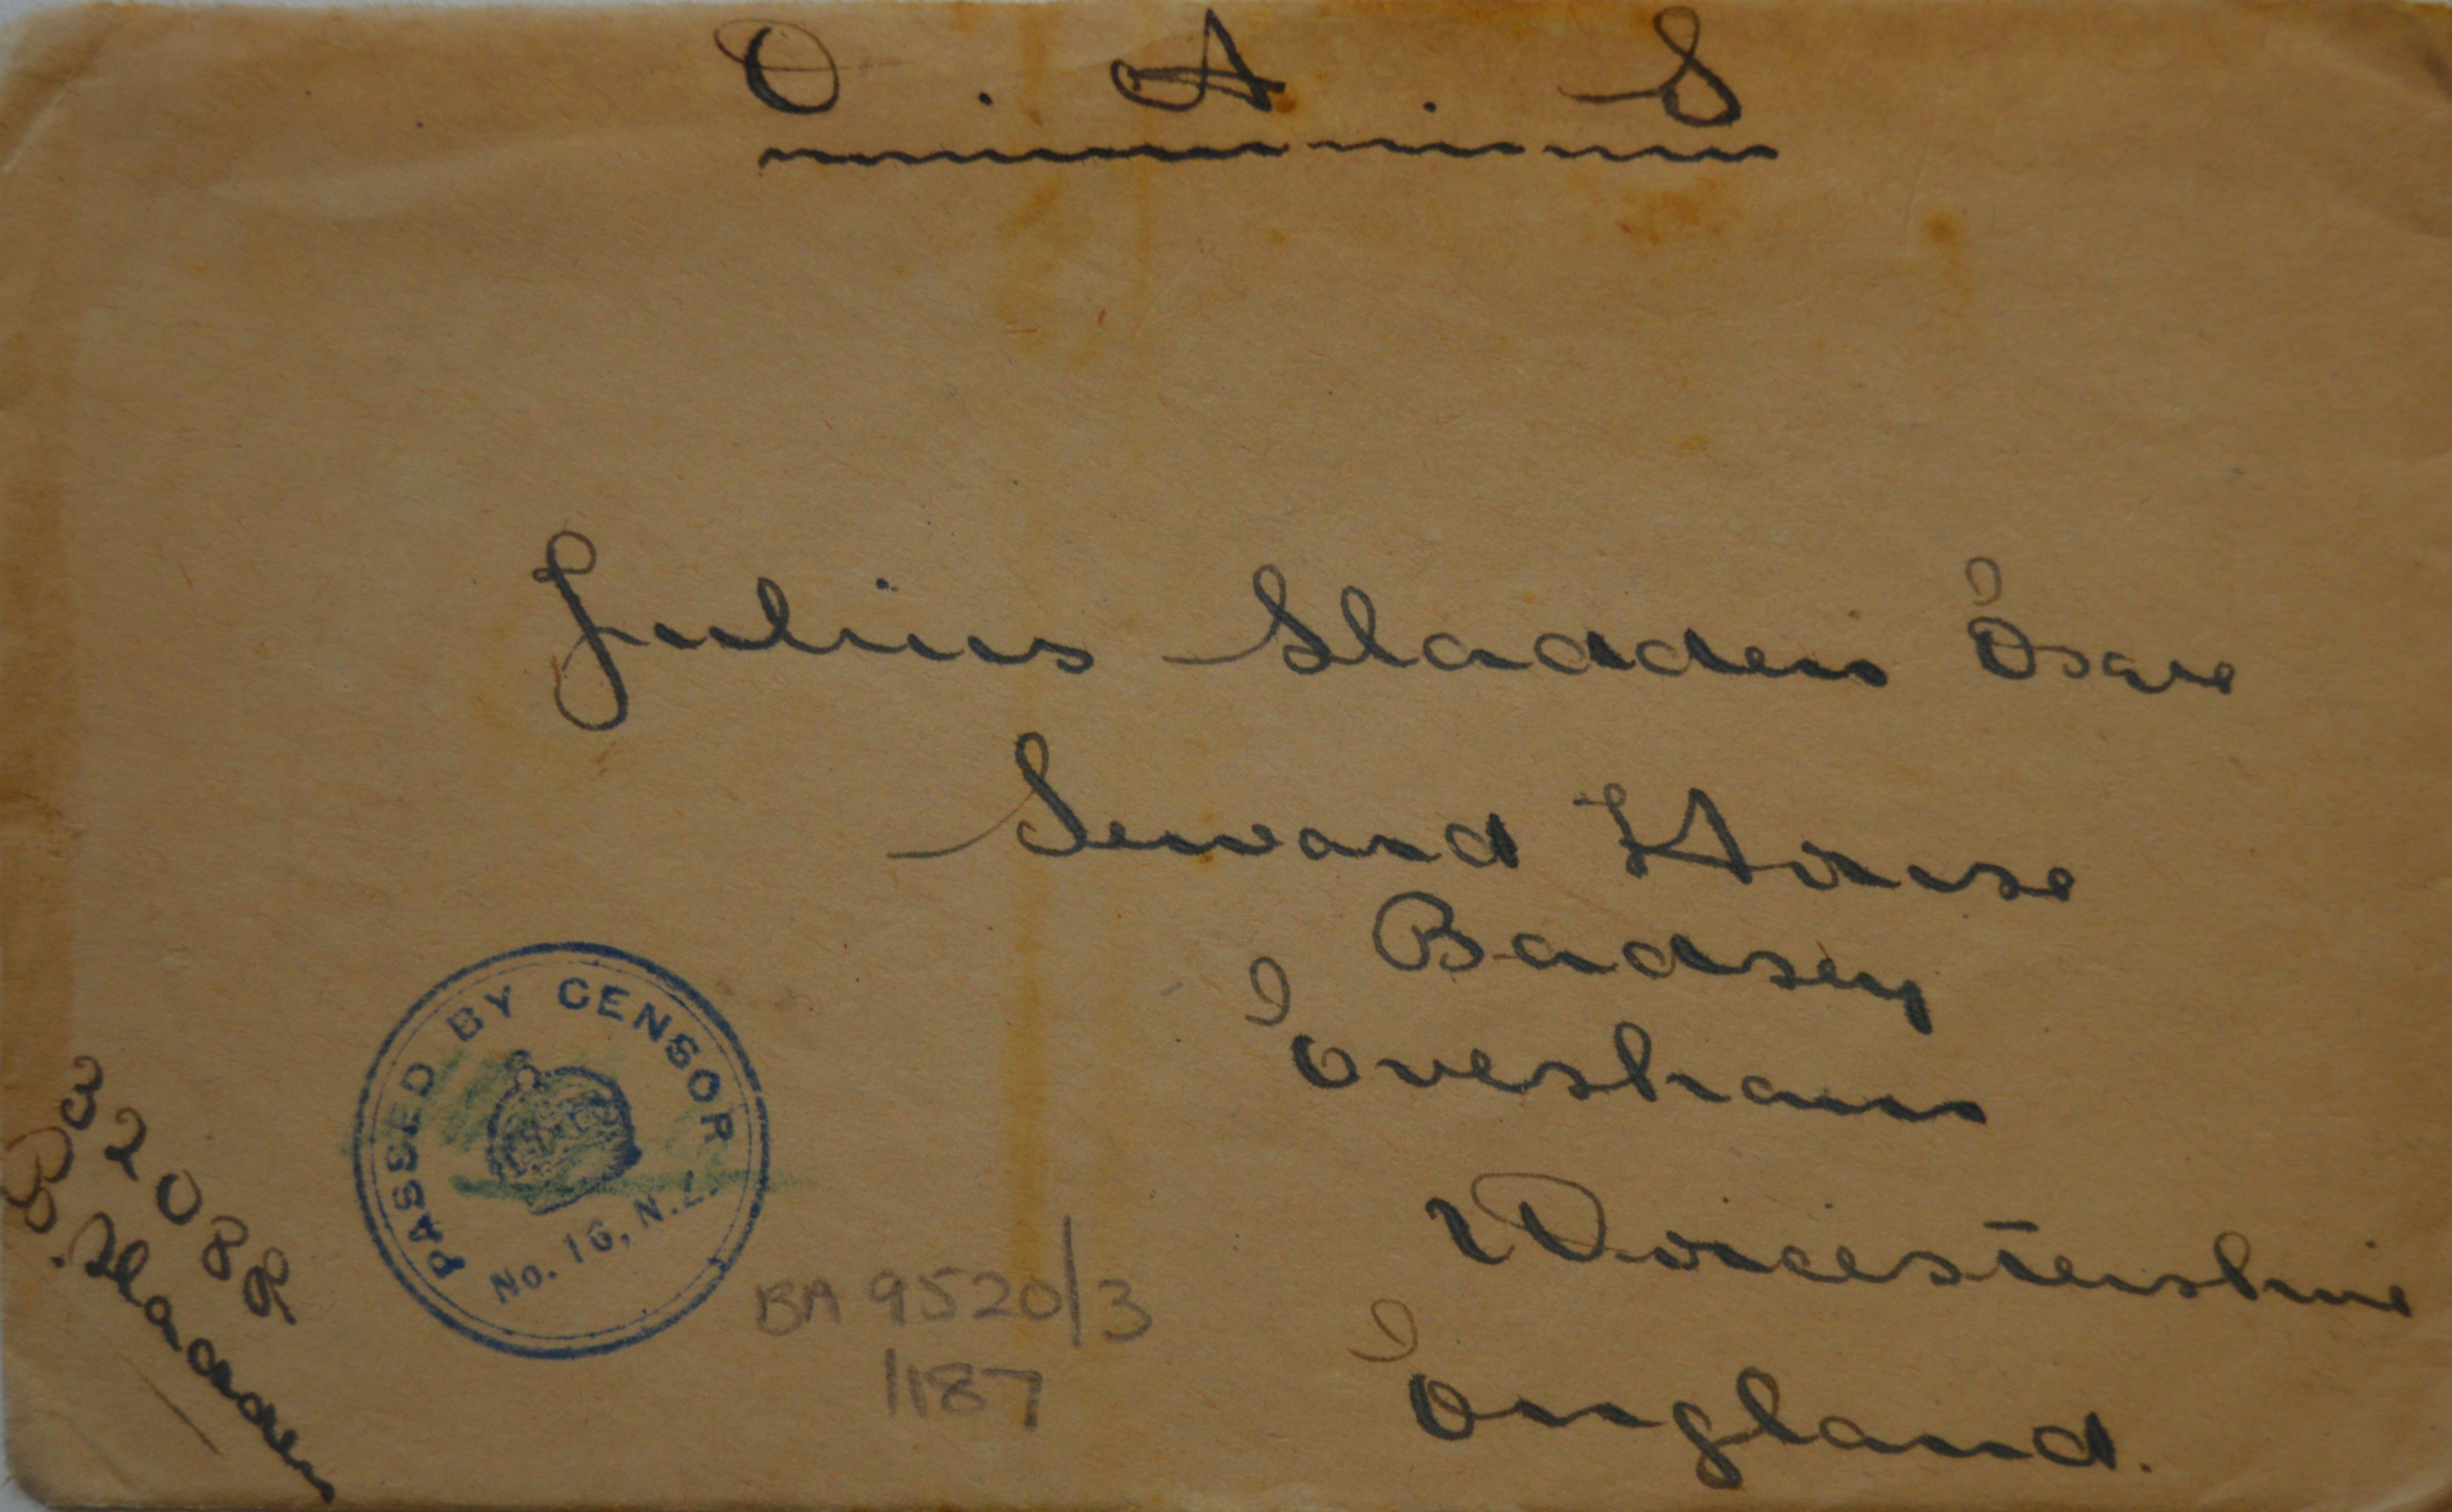 O. A. S
Julius Sladden Esqre
Seward House
Badsey
Evesham
Worcestershire
England.
PASSED BY CENSOR
No. 16, N.Z.
BA 9520/3
1187
32088
B. Sladden